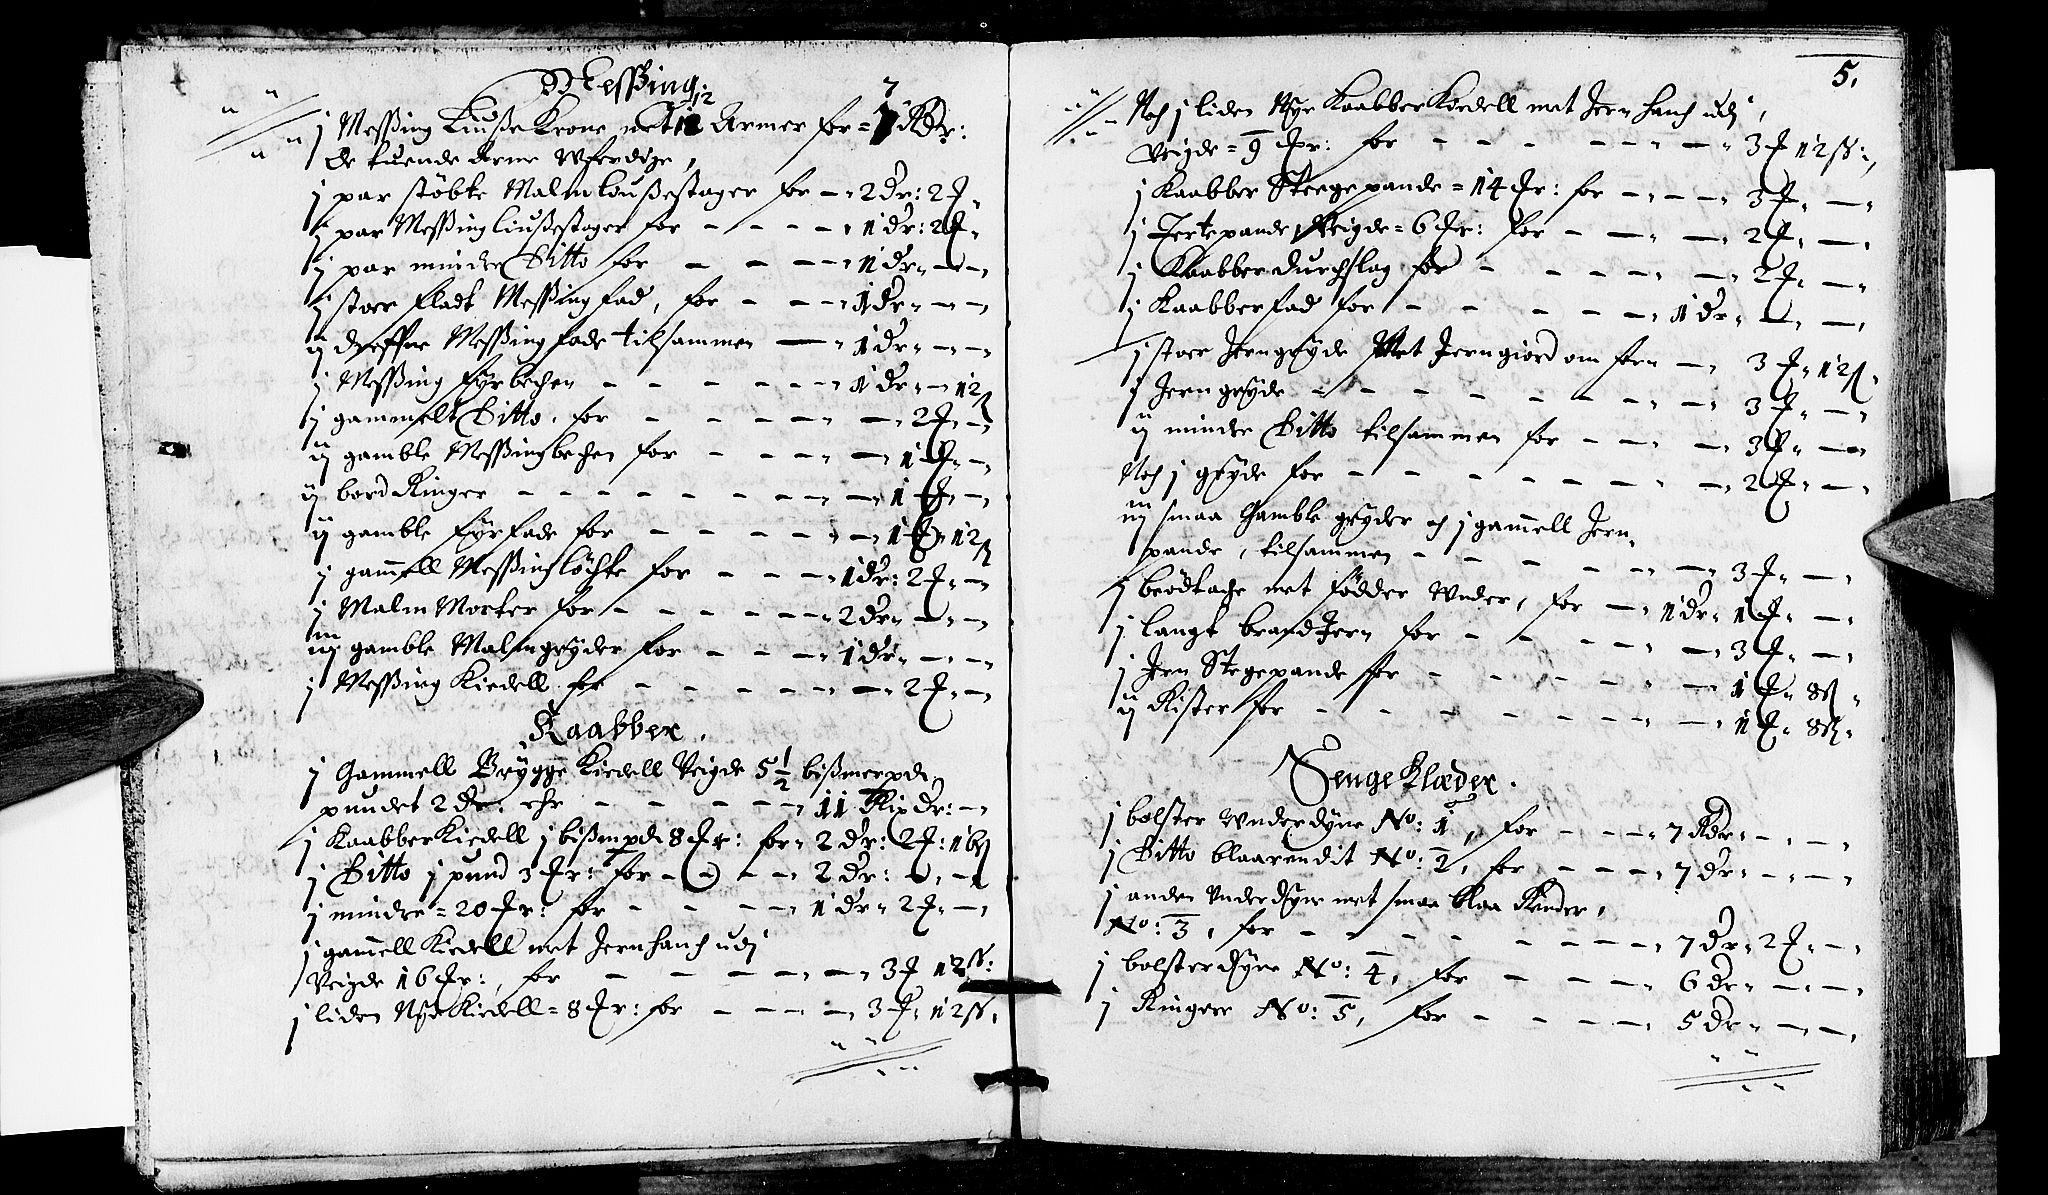 Messßing
j Messßing Liuße Krone met 12 Armer for = 7 Rdr:
de tuende Arme uferdige,
j par støbte Malm louße stager for – 2 Dr: 2 ₰ –
j par Messßing liußestager for – – – – 1 dr: 2 ₰ –
j par minder Ditto for – – – – 1 dr – – –
j stoer fladt Messßing fad, for – – – 1 dr – – –
ij dreffne Messßing fade tilsammen — 1 dr – – –
j Messßing fyrbechen – – – – – – 1 dr – – 12 ß
j gammelt Ditto, for – – – – – – 2 ₰ –
ij gamble Messßingbechen for – – – – – 1 ₰ –
ij bord Ringer – – – – – – – – – 1 ₰ –
ij gamble fyrfade for – – – – – – 1 ₰ 12 ß
j gammell Messßing løchte for – – – 1 dr: 2 ₰ –
j Malm Morter for – – – – – – 2 dr – – –
iij gamble Malmgryder for – – – – 1 dr – – –
j Messßing Kiedell for – – – – – – – 2 ₰ –
Kaabber.
j Gammell Brygge Kiedell Veigde 5 1/2 bißmerpd
pundet 2 dr: ehr – – – – – – 11 Rix Dr: –
j Kaabber Kiedell j bißmpd 8 ₰r: for 2 dr: 2 ₰: 16 ß
j Ditto j pund 3 ₰r: for – – – – 2 dr: – –
j mindre = 20 ₰r: for – – – – 1 dr 2 ₰ –
j gammell Kiedell met Jernhanch udj
Veigde 16 ₰r:, for – – – – – – 3 ₰ 12 ß:
j liden Nye Kiedell = 8 ₰r: for – – – – 3 ₰ 12 ß.
5.
Noch j liden Nye Kaabber Kiedell met Jern hanch udj,
Veigde = 9 ₰r: for – – – – – – – 3 ₰ 12 ß:
j Kaabber Steegepande = 14 ₰r: for – – – 3 ₰ – –
j Tertepande Veigde = 6 ₰r: for – – – – 2 ₰ – –
j Kaabber durchslag for – – – – – – 2 ₰ – –
j Kaabberfad for – – – – – – 1 dr – – –
j stoer Jerngryde Met Jerngiord om for – 3 ₰ 12 ß.
j Jern gryde – – – – – – – – – 3 ₰ – –
ij minder Ditto tilsammen for – – – – 3 ₰ – –
Noch j gryde for – – – – – – – – 2 ₰ – –
iij smaa Gamble gryder och j gammell Jern
pande, tilsammen – – – – – – – – 3 ₰ – –
j brødtache met fødder under, for – 1 dr 1 ₰ –
j langt brandJern for – – – – – – 3 ₰ – –
j Jern Stegepande for – – – – – – 1 ₰ 8 ß
ij Rister for – – – – – – – – – 1 ₰ 8 ß.
Senge Klæder.
j bolster underdyne No: 1, for – – – 7 Rdr – – –
j Ditto blaarendit No: 2, for – – – 7 dr – – –
j anden underdyne met smaa blaa Render,
No: 3, for – – – – – – – – 7 dr 2 ₰ – –
j bolsterdyne No: 4, for – – – – 6 dr – – –
j Ringere No: 5, for – – – – 5 dr – – –